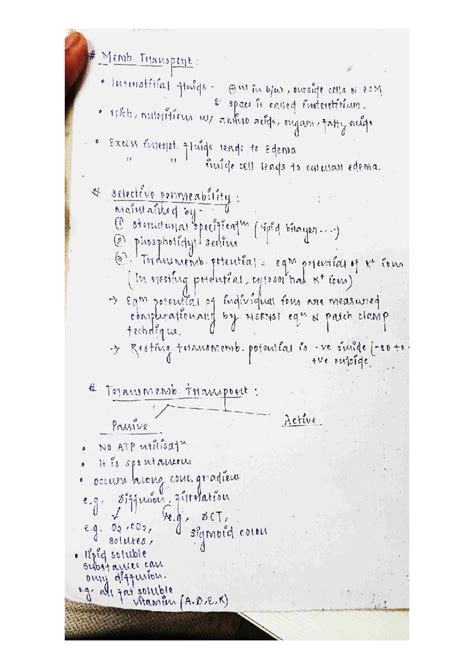 # Memb. Transport :
• Interstitial fluids - in b/w, outside cells & ECM
& space is called interstitium.
• Rich, nutritious w/ amino acids, sugars, fatty acids
• Excess interst. fluids leads to Edema
" " inside cell leads to cellular edema.
# Selective permeability :
Maintained by -
① structural specificⁿ (lipid bilayer...)
② phospholidyl serine
③ Transmemb. potential : eqᵐ potential of K⁺ ions
(In resting potential, cytosol has K⁺ ions)
→ Eqᵐ potential of individual ions are measured
computationally by NERNST eqⁿ & patch clamp
technique.
→ Resting transmemb. potential is -ve inside (-20 to
+ve outside.
# Transmemb. Transport :
Passive Active
• NO ATP utilisaⁿ
• It is spontaneous
• occurs along conc. gradien
e.g. Diffusion, filtration
e.g. O₂, CO₂, e.g, DCT,
solutes, sigmoid colon
• lipid soluble
substances can
only diffusion.
e.g. all fat soluble
vitamins (A,D,E,K)